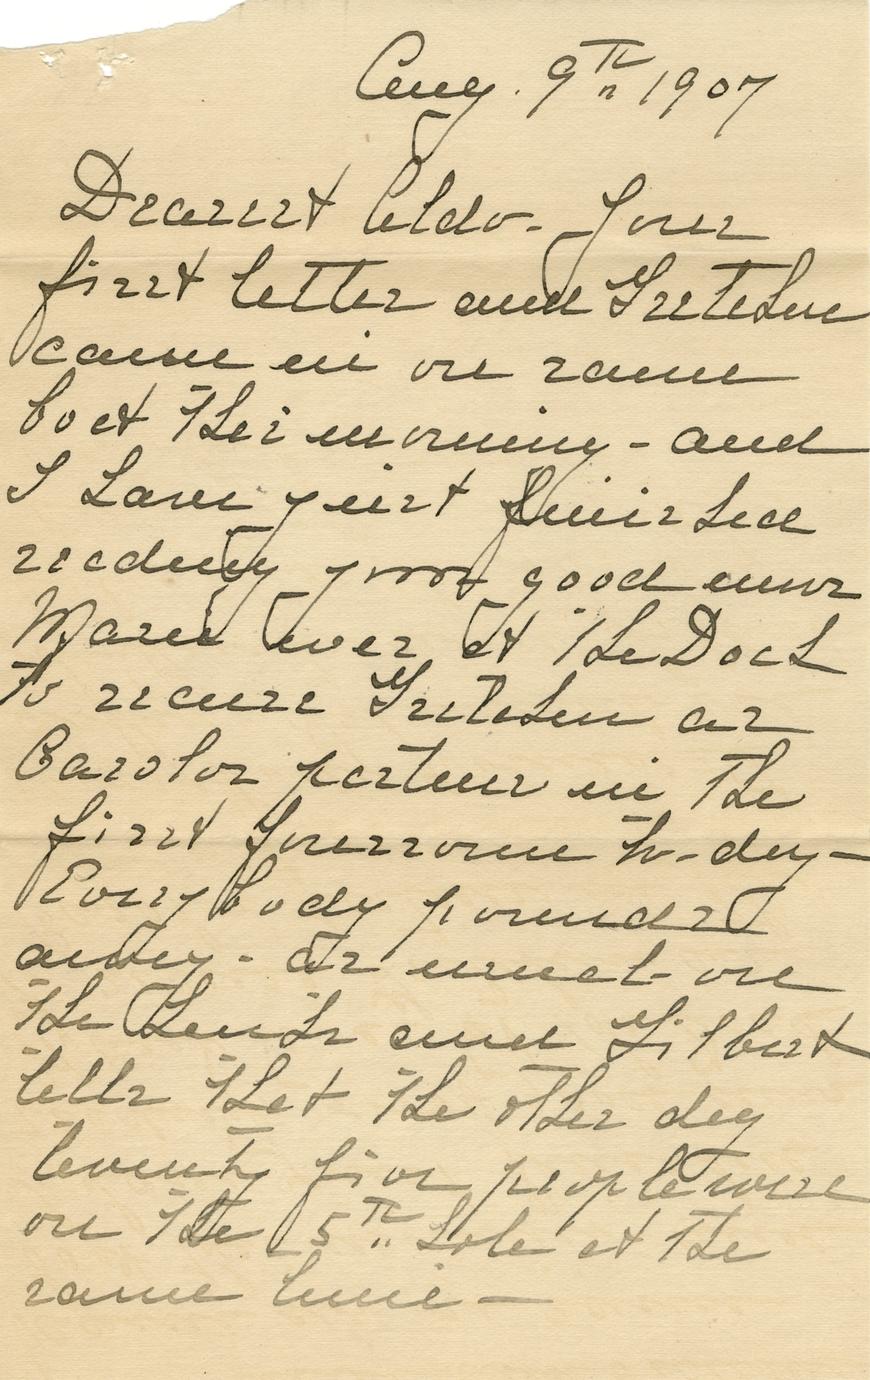 Aug. 9th 1907
Dearest Aldo - Your
first letter and Gretchen
came in on same
boat this morning - and
I have just finished
reading your good news
Marie over at the Dock
to secure Gretchen as
Carolos partner in the
first foursome to-day -
Everybody pounds
away - as usual - on
the Links and Gilbert
tells that the other day
twenty five people were
on the 5th hole at the
same time -